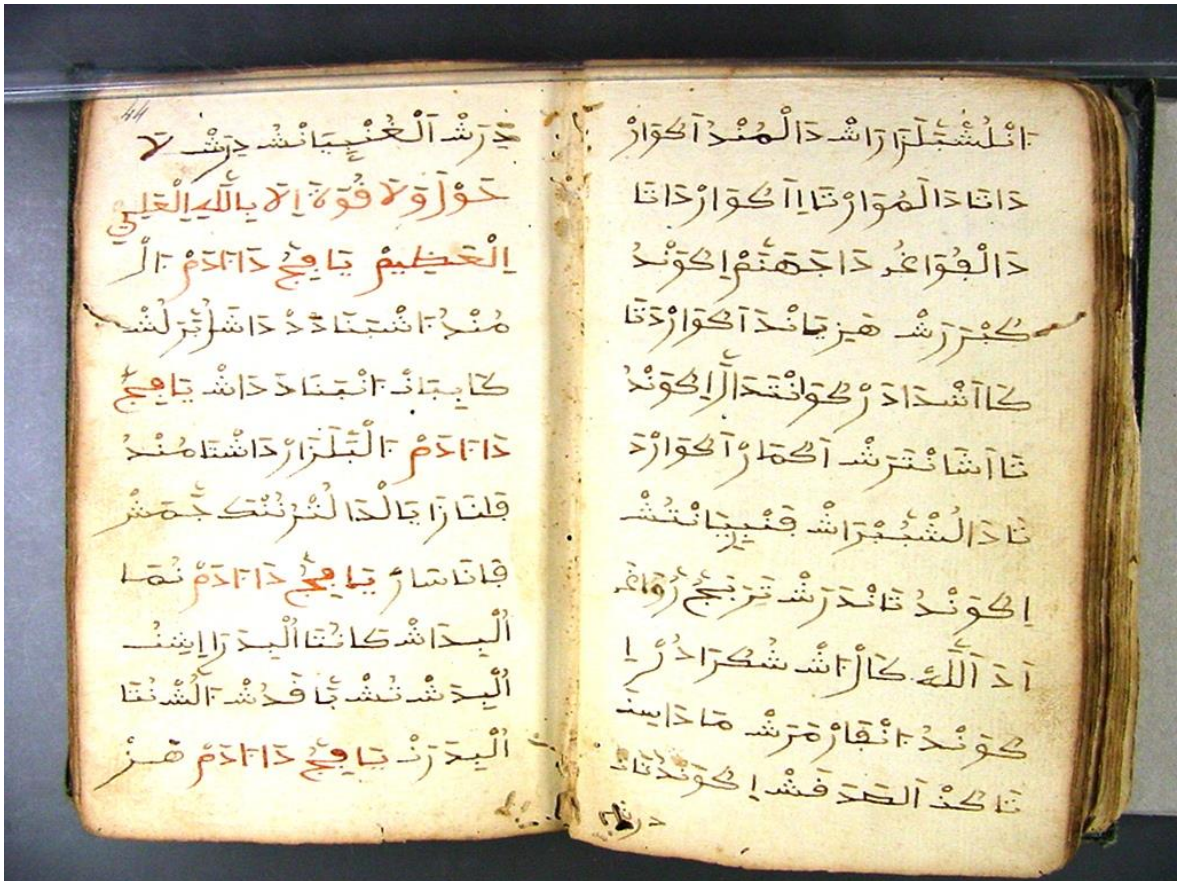 اَنْلُشْبَّلَزَارَاشْ دَالْمُنْدُ اَكُوَارْ
دَاتَا دَالَمُوَارْتَا اِاَكُوَارْدَاتَا
دَالْفُوَاغُ دَا جَهَنَّمْ اِكُوَنْدُ
كُبْرَرَشْ هَزِيَانْدَ اَكُوَارْدَتَا
كَااَشْدَادَرْ كُوَانْتَدَالَّا اِكُوَنْدُ
تَااَشَانْتَرَشْ اَكُمَارْ اَكُوَارْدَ
تَادَالُشْبُّبْرَاشْ فَنْبِرِيَانْتُشْ
اِكُوَنْدُ تَانْدَرَشْ تِرَبَجُّ رُّوَاغَ
اَدَ اَللَّهْ كَالْاَشْ شُكُرَادُرْ اِ
كُوَنْدُ اَنْفَارْمَرَشْ مَادَاسِنَ
تَاكُنْ اَلصَّدَقَشْ اِكُوَنْدُتَانْ
درش
44
دَرَشْ اَلْغُنْبِّيَانْشُ دِرَشْ لَا
حَوْلَ وَلَا قُوَّةَ اِلَّا بِاللَّهِ اِلْعَلِيِّ
اِلْعَظِيمْ يَا فِجُّ دَاءَادَمْ اَالْ
مُنْدُ اَشْبَنَادَدْ دَاشَابَّرَ لُشْ
كَابِبَانْ اَنْبَنَادَدَاشْ يَا فِجُّ
دَاءَادَمْ اَلْبَّلَزَارْ دَاشْتَا مُنْدُ
يَالْدَا لُتْرُ نُنْكَ جَّمَشْ
فَانَاسَارَ يَا فِجُّ دَاءَادَمْ نُمَا
اُلْبِدَاشْ كَانُتَا اُلْبِدَرَا اِشِنُ
اُلْبِدَشْ تُشْ بَّاقَدُشْ اَلُشْنُتَا
اُلْبِدَرَنْ يَا فِجُّ دَاءَادَمْ هَزْ